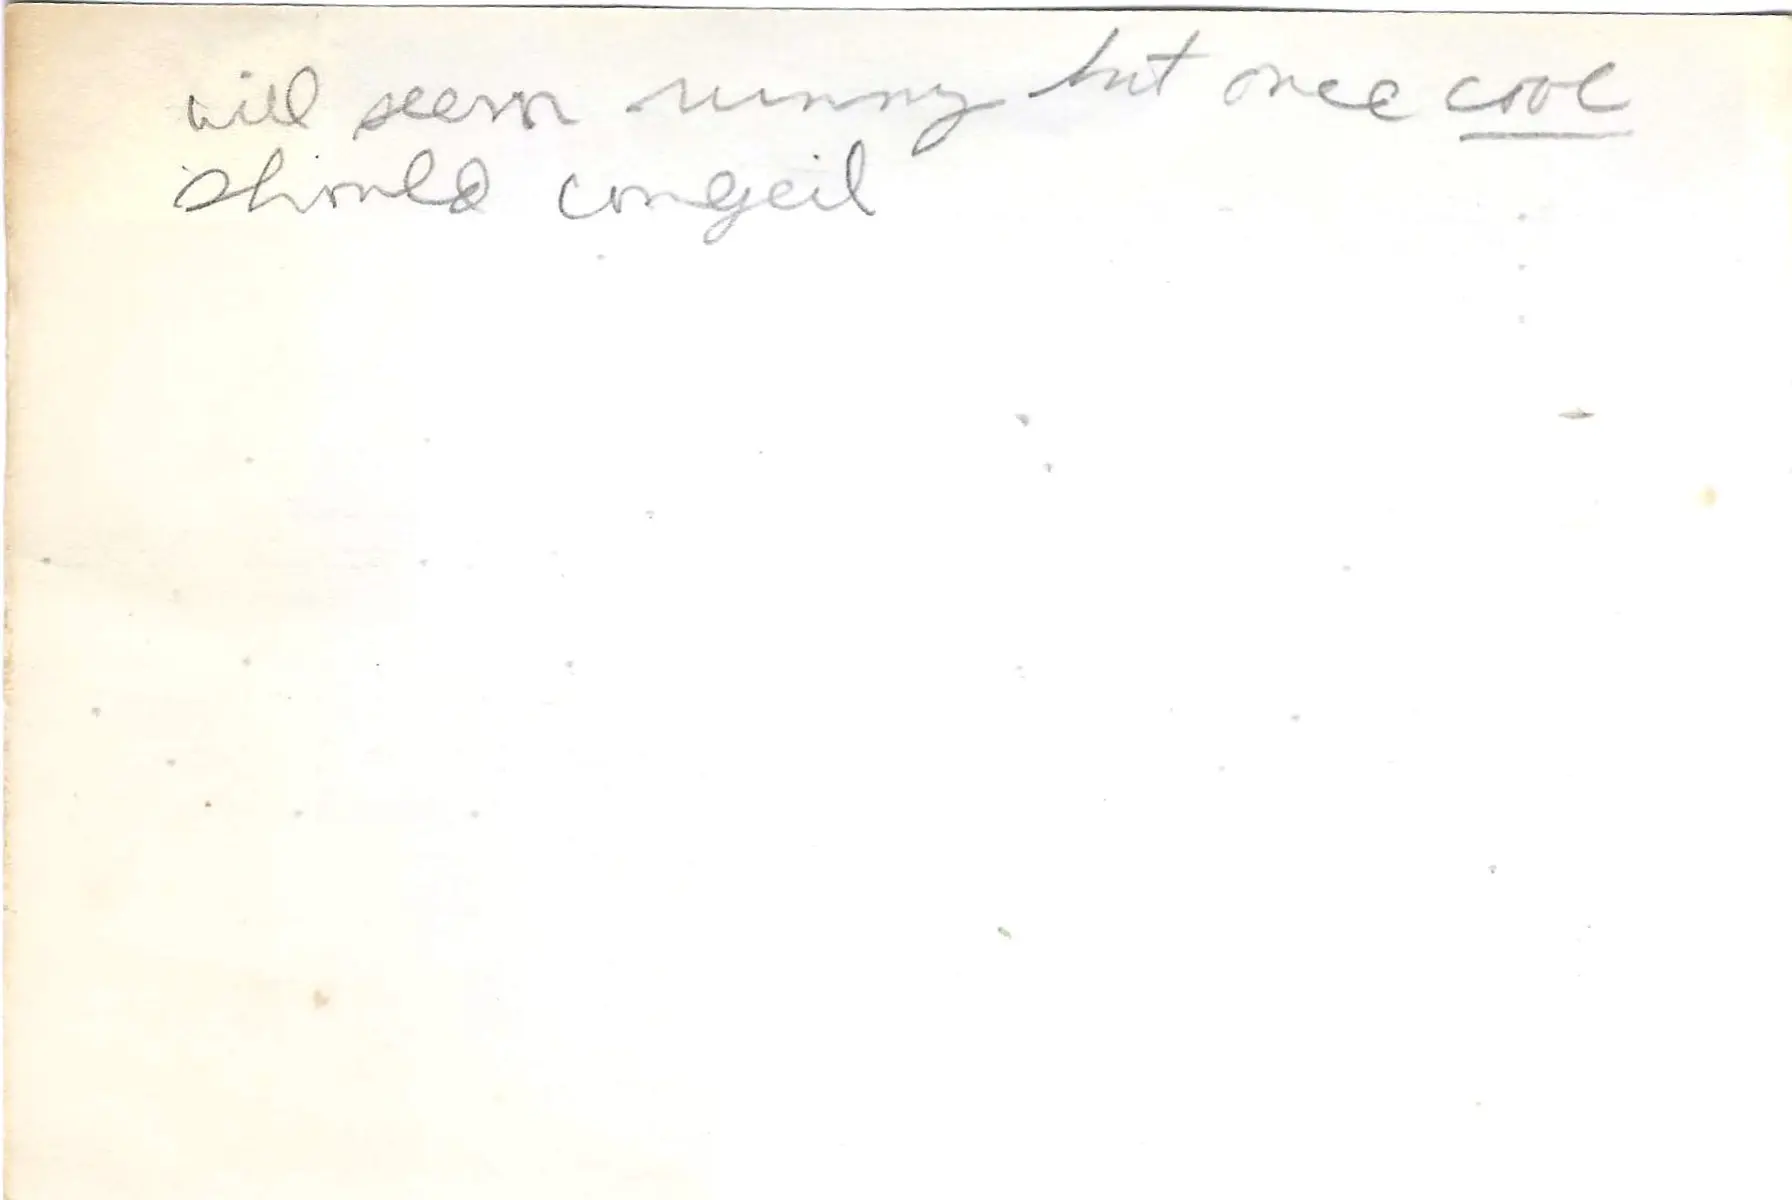 will seem runny but once cool
should congeil